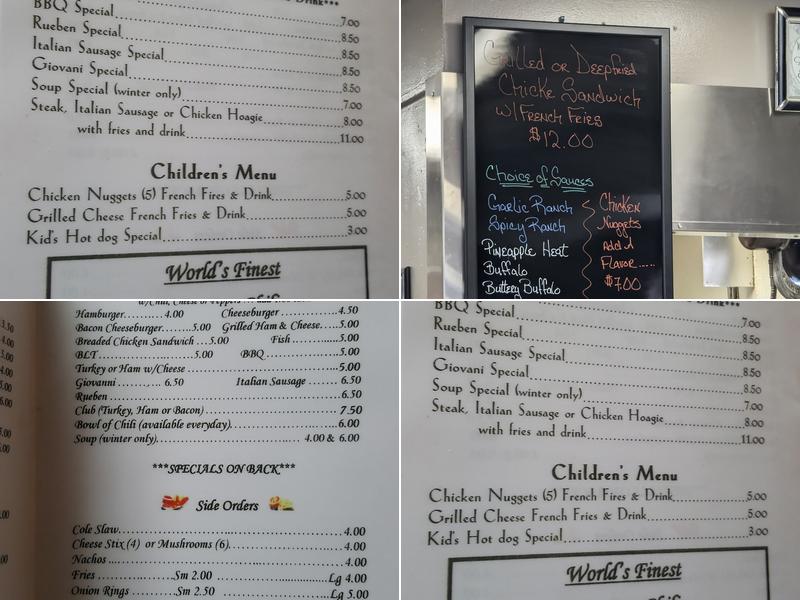 Drink***
7.00
BBQ Special 8.50
Rueben Special 8.50
Italian Sausage Special 8.50
Giovani Special 8.50
Soup Special (winter only) 7.00
Steak, Italian Sausage or Chicken Hoagie 8.00
with fries and drink 11.00
Children's Menu
Chicken Nuggets (5) French Fires & Drink 5.00
Grilled Cheese French Fries & Drink 5.00
Kid's Hot dog Special 3.00
World's Finest
Grilled or Deepfried
Chicke Sandwich
w/French Fries
$12.00
Choice of Sauces
Garlic Ranch
Spicy Ranch
Pineapple Heat
Buffalo
Buttery Buffalo
Chicken
Nuggets
Add A
Flavor.....
$7.00
Hamburger 4.00 Cheeseburger 4.50
Bacon Cheeseburger 5.00 Grilled Ham & Cheese 5.00
Breaded Chicken Sandwich 5.00 Fish 5.00
BLT 5.00 BBQ 5.00
Turkey or Ham w/Cheese 5.00
Giovanni 6.50 Italian Sausage 6.50
Rueben 6.50
Club (Turkey, Ham or Bacon) 7.50
Bowl of Chili (available everyday) 6.00
Soup (winter only) 4.00 & 6.00
***SPECIALS ON BACK***
Side Orders
Cole Slaw 4.00
Cheese Stix (4) or Mushrooms (6) 4.00
Nachos 4.00
Fries Sm 2.00 Lg 4.00
Onion Rings Sm 2.50 Lg 5.00
Drink***
7.00
BBQ Special 8.50
Rueben Special 8.50
Italian Sausage Special 8.50
Giovani Special 8.50
Soup Special (winter only) 7.00
Steak, Italian Sausage or Chicken Hoagie 8.00
with fries and drink 11.00
Children's Menu
Chicken Nuggets (5) French Fires & Drink 5.00
Grilled Cheese French Fries & Drink 5.00
Kid's Hot dog Special 3.00
World's Finest